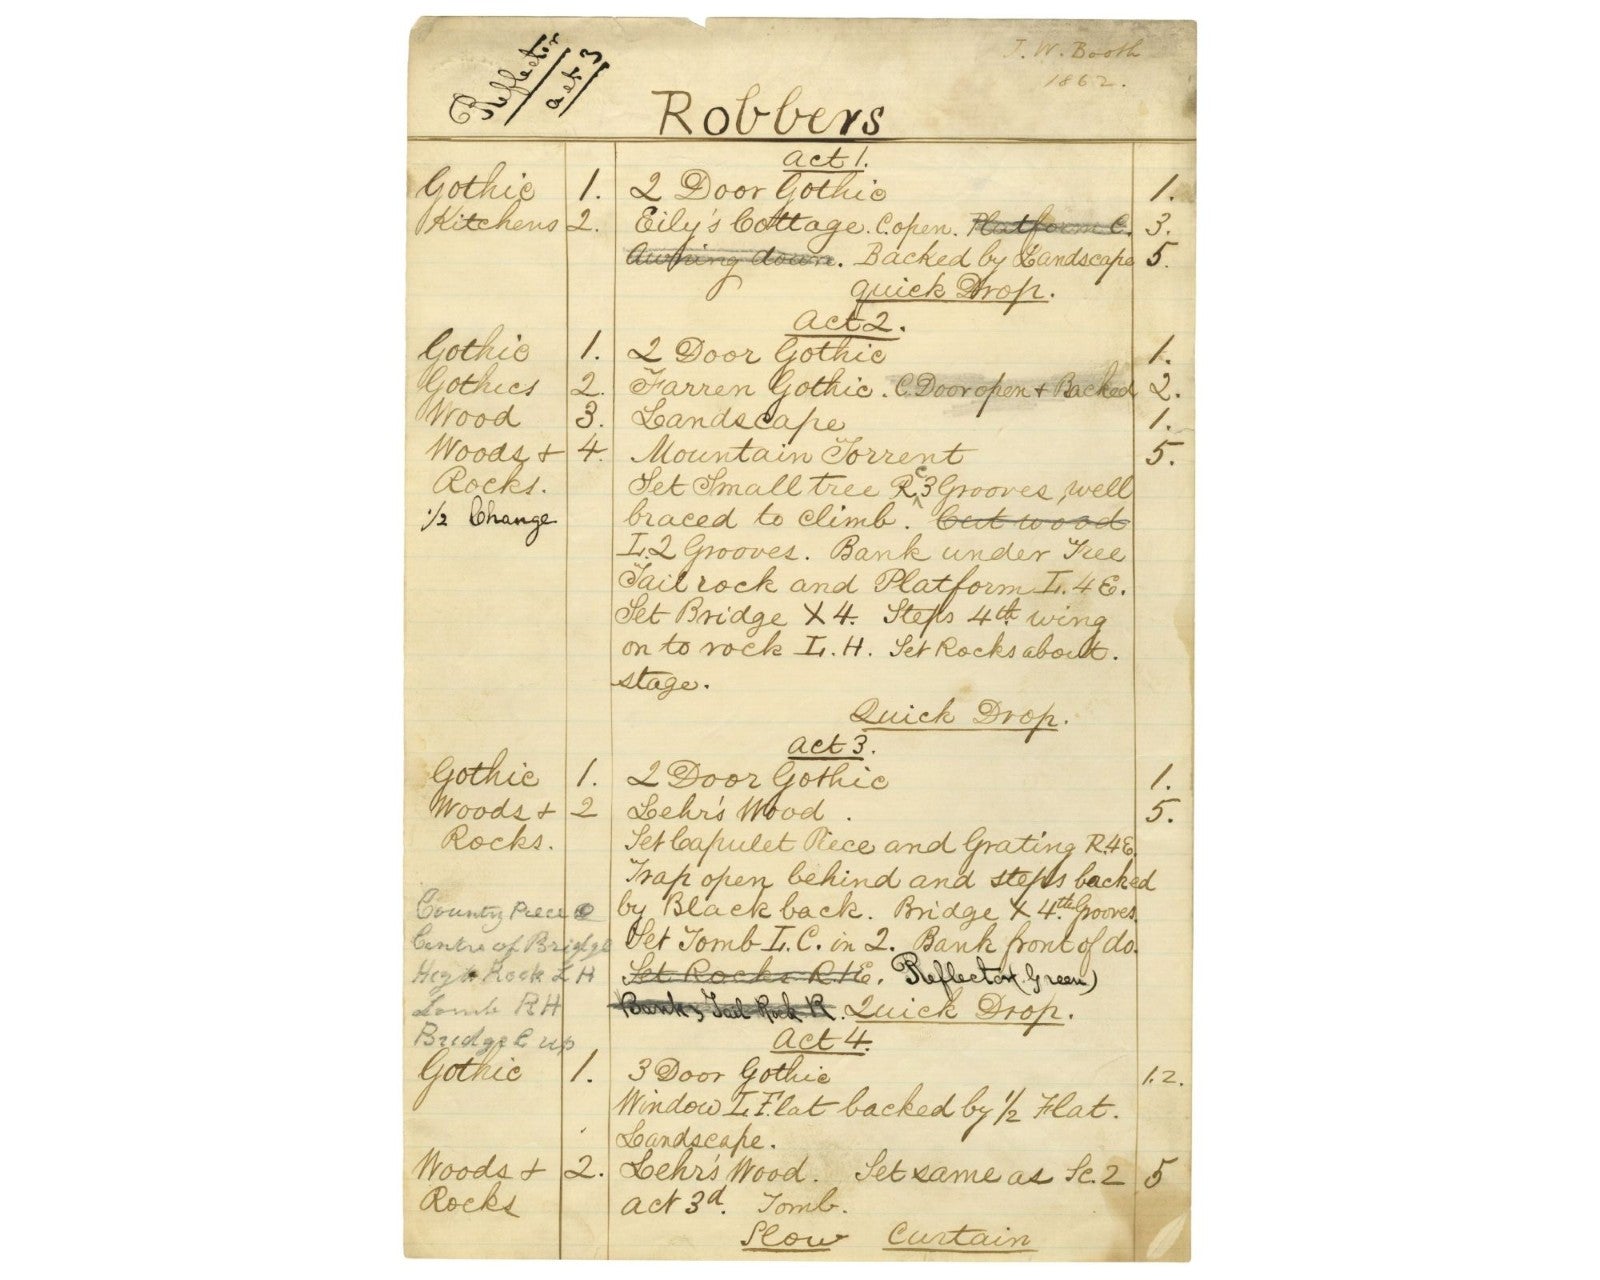 Reflector
act 3
J. W. Booth
1862.
Robbers
Act 1.
Gothic 1. 2 Door Gothic 1.
Kitchens 2. Eily's Cottage. C. open. Platform C. 3.
Awning down. Backed by Landscape 5.
quick Drop.
Act 2.
Gothic 1. 2 Door Gothic 1.
Gothics 2. Farren Gothic. C. Door open + Backed 2.
Wood 3. Landscape 1.
Woods + 4. Mountain Torrent 5.
Rocks. Set Small tree R C 3 Grooves, well
1/2 Change braced to climb. Cut wood
L. 2 Grooves. Bank under Tree
Tail rock and Platform L. 4 E.
Set Bridge X 4. Steps 4th wing
on to rock L. H. Set Rocks about.
stage.
Quick Drop.
Act 3.
Gothic 1. 2 Door Gothic 1.
Woods + 2 Lehr's Wood. 5.
Rocks. Set Capulet Piece and Grating R. 4 E.
Trap open behind and steps backed
Country Piece by Black back. Bridge X 4th Grooves.
Centre of Bridge Set Tomb L. C. in 2. Bank front of do.
High Rock L H Set Rocks R. 1 E. Reflector (Green)
Tomb R H Bank, Tail Rock R. Quick Drop.
Bridge C up Act 4.
Gothic 1. 3 Door Gothic 1.2.
Window L. Flat backed by 1/2 Flat.
Landscape.
Woods + 2. Lehr's Wood. Set same as Sc. 2 5
Rocks act 3d. Tomb.
Slow Curtain